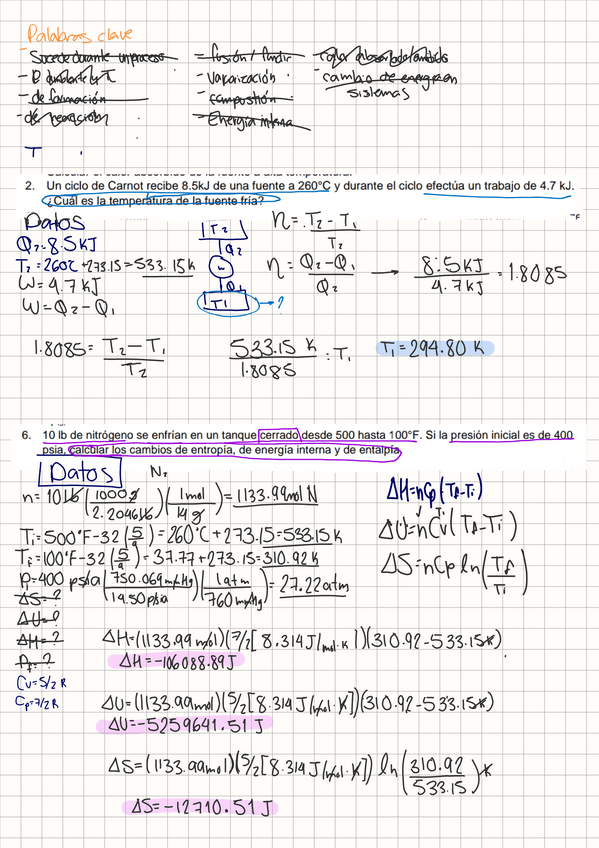 Palabras clave
- Sucede durante un proceso - fusión / fundir - calor absorbido
- Vaporización · - cambio de energía en sistemas
- de formación - combustión
- de reacción - Energía interna
T
2. Un ciclo de Carnot recibe 8.5kJ de una fuente a 260°C y durante el ciclo efectúa un trabajo de 4.7 kJ.
¿Cuál es la temperatura de la fuente fría?
Datos
Q₂=8.5KJ
T₂=260C+273.15=533.15K
W=4.7KJ
W=Q₂-Q₁
T2
Q2
W
Q1
T1 → ?
n=.T₂-T₁/T₂
n=Q₂-Q₁/Q₂ → 8.5KJ/4.7KJ = 1.8085
1.8085= T₂-T₁/T₂ 533.15 K/1.8085 : T₁ T₁=294.80 K
6. 10 lb de nitrógeno se enfrían en un tanque cerrado desde 500 hasta 100°F. Si la presión inicial es de 400
psia, calcular los cambios de entropía, de energía interna y de entalpía.
Datos N₂
n= 10lb(1000g/2.2046lb)(1mol/14g)=1133.99mol N
Ti=500°F-32(5/9)=260°C+273.15=533.15K
Tf=100°F-32(5/9)=37.77+273.15=310.92K
P=400 psia(750.069mmHg/14.50psia)(1atm/760mmHg)=27.22atm
ΔS=?
ΔU=?
ΔH=?
Pf=?
Cv=5/2 R
Cp=7/2R
ΔH=nCp(Tf-Ti)
ΔU=nCv(Tf-Ti)
ΔS=nCp ln(Tf/Ti)
ΔH=(1133.99mol)(7/2[8.314J/mol·K])(310.92-533.15K)
ΔH=-106088.89J
ΔU=(1133.99mol)(5/2[8.314J/mol·K])(310.92-533.15K)
ΔU=-5259641.51 J
ΔS=(1133.99mol)(5/2[8.314J/mol·K]) ln(310.92/533.15)K
ΔS=-12710.51 J